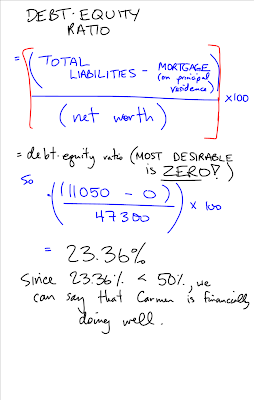 DEBT-EQUITY
RATIO
= [ ( TOTAL LIABILITIES - MORTGAGE (on principal residence) )
( net worth ) ] x100
= debt-equity ratio (MOST DESIRABLE
is ZERO!)
so
( (11050 - 0)
47300 ) x 100
= 23.36%
Since 23.36% < 50%, we
can say that Carmen is financially
doing well.